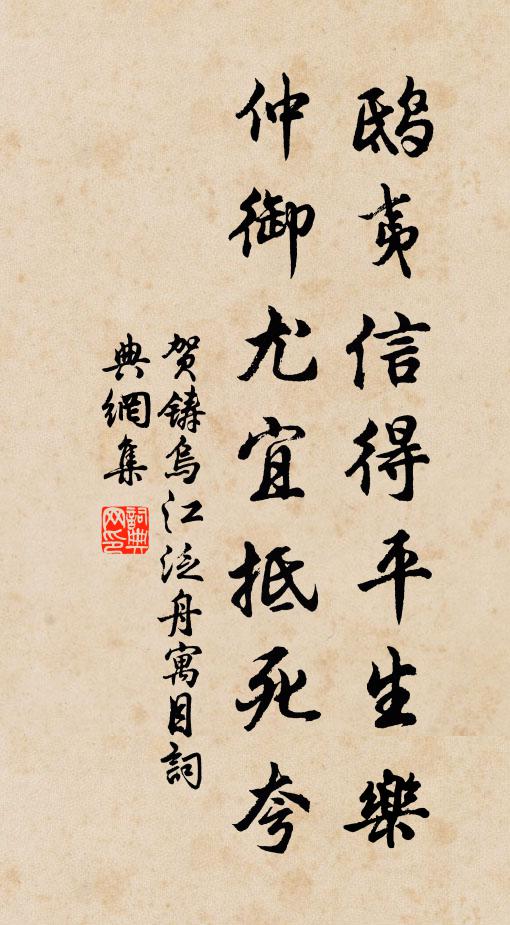 鴟夷信得平生樂
仲御尤宜抵死夸
賀鑄烏江泛舟寓目詞
典網集
詞典網印